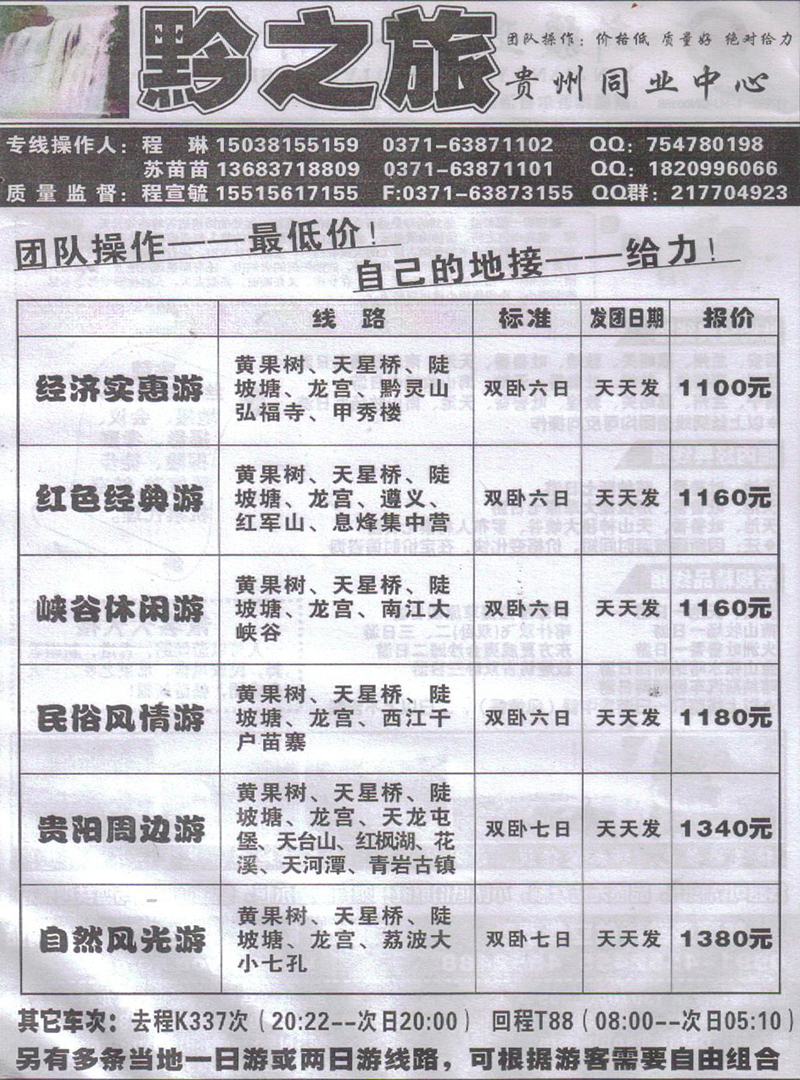 黔之旅
团队操作：价格低 质量好 绝对给力
贵州同业中心
专线操作人：程 琳 15038155159 0371-63871102 QQ：754780198
苏苗苗 13683718809 0371-63871101 QQ：1820996066
质量监督：程宣毓 15515617155 F:0371-63873155 QQ群：217704923
团队操作——最低价！
自己的地接——给力！
线路 标准 发团日期 报价
经济实惠游 黄果树、天星桥、陡
坡塘、龙宫、黔灵山
弘福寺、甲秀楼 双卧六日 天天发 1100元
红色经典游 黄果树、天星桥、陡
坡塘、龙宫、遵义、
红军山、息烽集中营 双卧六日 天天发 1160元
峡谷休闲游 黄果树、天星桥、陡
坡塘、龙宫、南江大
峡谷 双卧六日 天天发 1160元
民俗风情游 黄果树、天星桥、陡
坡塘、龙宫、西江千
户苗寨 双卧六日 天天发 1180元
贵阳周边游 黄果树、天星桥、陡
坡塘、龙宫、天龙屯
堡、天台山、红枫湖、花
溪、天河潭、青岩古镇 双卧七日 天天发 1340元
自然风光游 黄果树、天星桥、陡
坡塘、龙宫、荔波大
小七孔 双卧七日 天天发 1380元
其它车次：去程K337次（20:22--次日20:00） 回程T88（08:00--次日05:10）
另有多条当地一日游或两日游线路，可根据游客需要自由组合